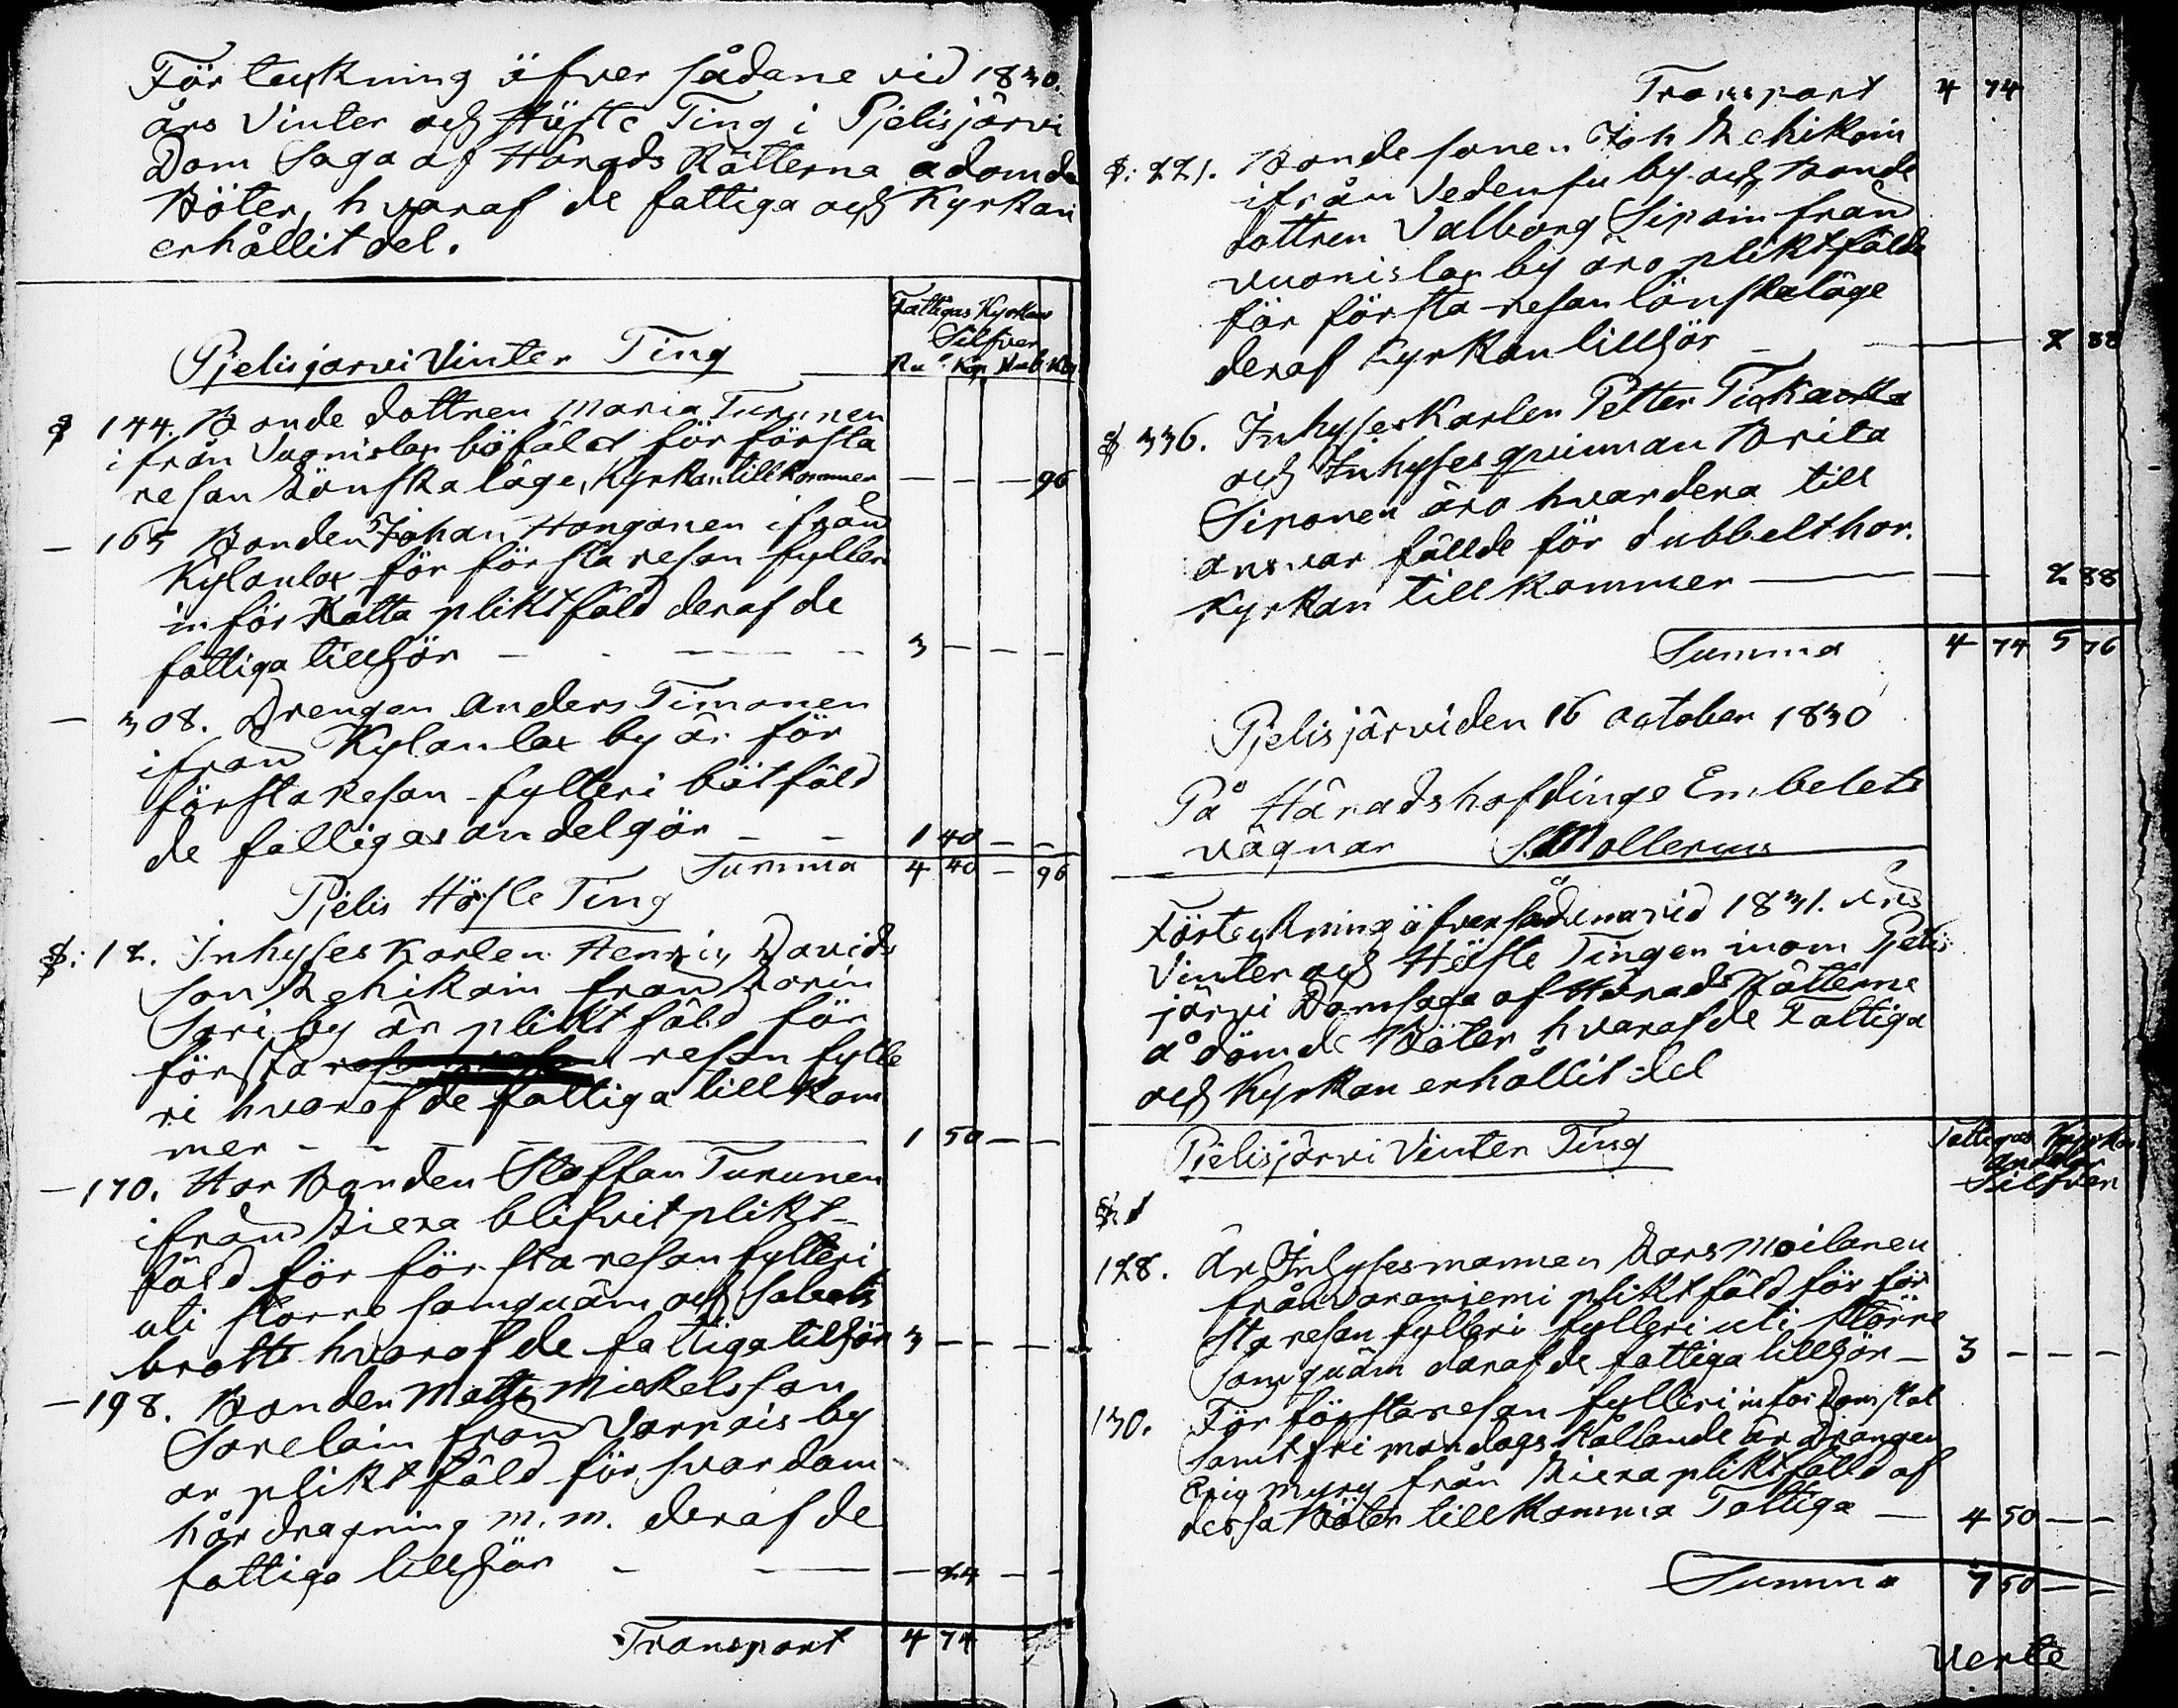 Förteckning öfver sådane vid 1830.
års Vinter och Höste Ting i Pjelisjärvi
Dom Saga af Härads Rätterna ådömda
Böter, hvaraf de fattiga och Kyrkan
erhållit del.
Fattigas Kyrkans
Silfver
Rub Kop Rub Kop
Pjelisjärvi Vinter Ting
§ 144. Bonde dottren Maria Turunen
ifrån Vuonislax böfäld för första
resan Lönska läge, Kyrkan tillkommer — — — 96
— 165 Bonden Johan Honganen ifrån
Kylanlax för första resan fylleri
inför Rätta pliktfäld deraf de
fattiga tillhör — — — 3 — — —
— 308. Drengen Anders Timonen
ifrån Kylanlax by är för
första Resan fylleri bötfäld
de fattigas andel gör — — 1 40 — —
Summa 4 40 — 96
Pjelis Höste Ting
§: 12. Inhyses Karlen Henric Davids
son Rehikain från Porin
Sari by är pliktfäld för
första resan fylle
ri hvaraf de fattiga tillkom
mer — — — 1 50 — —
— 170. Har Bonden Staffan Turunen
ifrån Liexa blifvit plikt-
fäld för första resan fylleri
uti större samquäm och sabats
brott hvaraf de fattiga tillhör 3 — — —
— 198. Bonden Matts Mickelsson
Sorelain från Varpais by
är pliktfäld för svordom
hårdragning m. m. deraf de
fattiga tillhör — — — 24 — —
Transport 4 74
Transport 4 74
§: 221. Bonde sonen Joh Rehikain
ifrån Vedensu by och Bonde
dottren Valborg Sipain från
Vuonislax by äro pliktfälde
för första resan lönskaläge
deraf Kyrkan tillhör — — 2 88
§ 336. Inhyses Karlen Petter Tickacka
och Inhyses qvinnan Brita
Siponen äro hvardera till
answar fällde för dubbelt hor.
Kyrkan tillkommer — — 2 88
Summa 4 74 5 76
Pjelisjärvi den 16 october 1830
På Häradshöfdinge Embetets
vägnar Mollerius
Förteckning öfver sådana vid 1831. års
Vinter och Höste Tingen inom Pjelis
järvi Domsaga af Härads Rätterne
ådömde Böter hvaraf de Fattiga
och Kyrkan erhållit del
Pjelisjärvi Vinter Ting
Fattigas Kyrkans
andelar
Silfver
§
128. Är Inhysesmannen Lars Moilanen
från Varaniemi pliktfäld för för
sta resan fylleri fylleri uti större
samquäm daraf de fattiga tillhör — 3 — — —
130. För första resan fylleri inför Domstol
samt fri mondags hållande är Drängen
Eric Myry från Liexa pliktfälld af
dessa Böter tillkomma Fattiga — 4 50 — —
Summa 7 50 — —
Verte